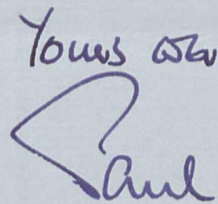 Yours ever
Paul